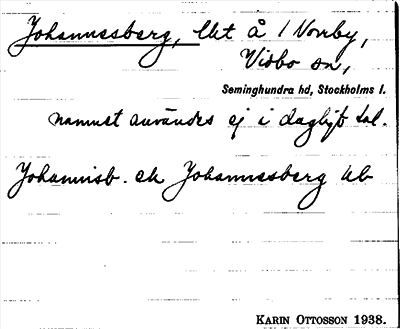 Johannesberg, lht å 1 Norrby,
Vidbo sn,
Seminghundra hd, Stockholms l.
namnet användes ej i dagligt tal.
Johannisb. ek Johannesberg hb
KARIN OTTOSSON 1938.